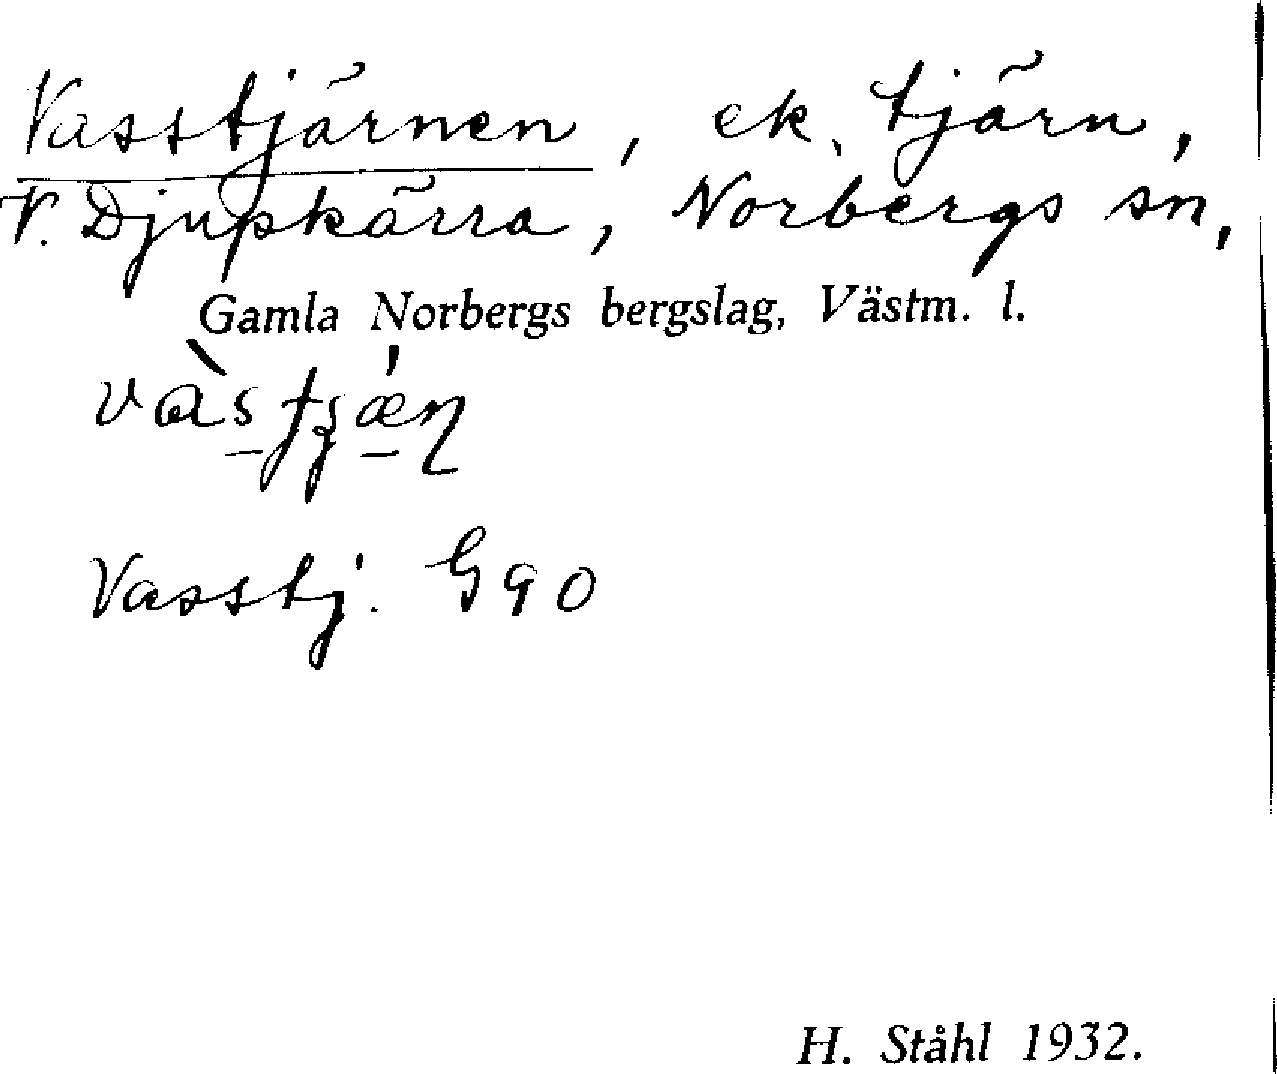 Vasstjärnen, ek. tjärn,
V. Djupkärra, Norbergs sn,
Gamla Norbergs bergslag, Västm. l.
Vasstj. G 90
H. Ståhl 1932.